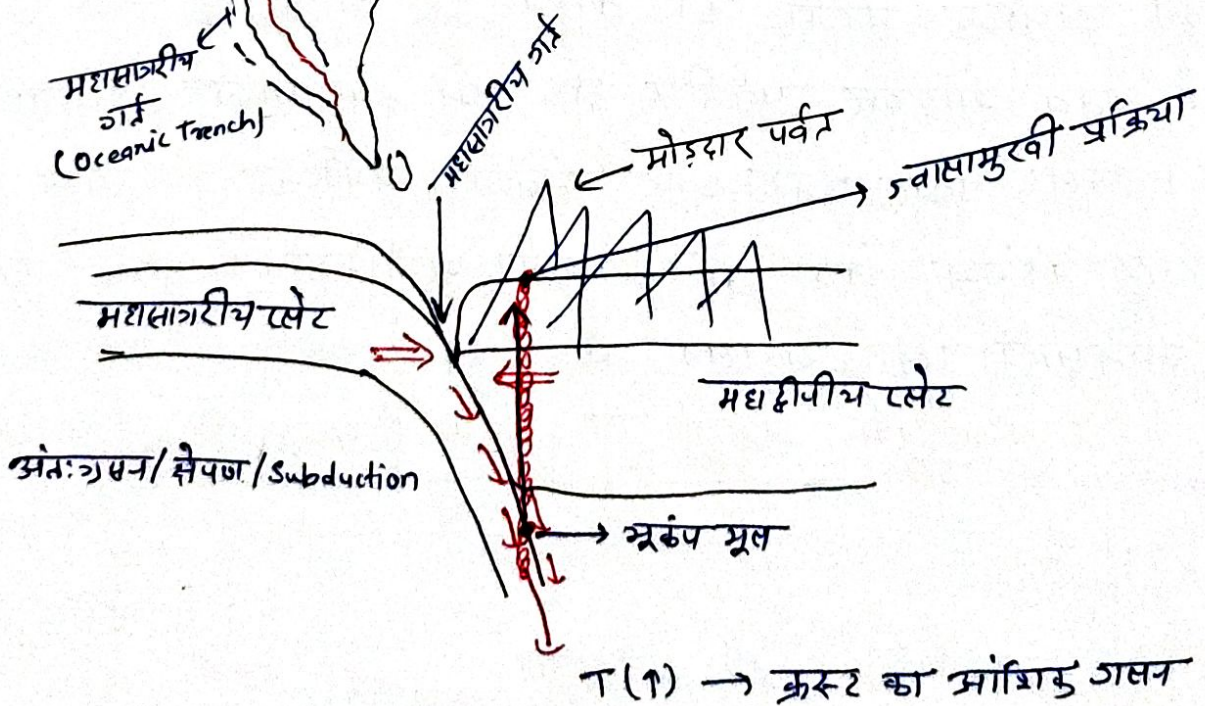 महासागरीय
गर्त
(Oceanic Trench)
महासागरीय गर्त
मोड़दार पर्वत
ज्वालामुखी प्रक्रिया
महासागरीय प्लेट
महाद्वीपीय प्लेट
अंतःग्रसन/क्षेपण/Subduction
भूकंप मूल
T(↑) → क्रस्ट का आंशिक गलन